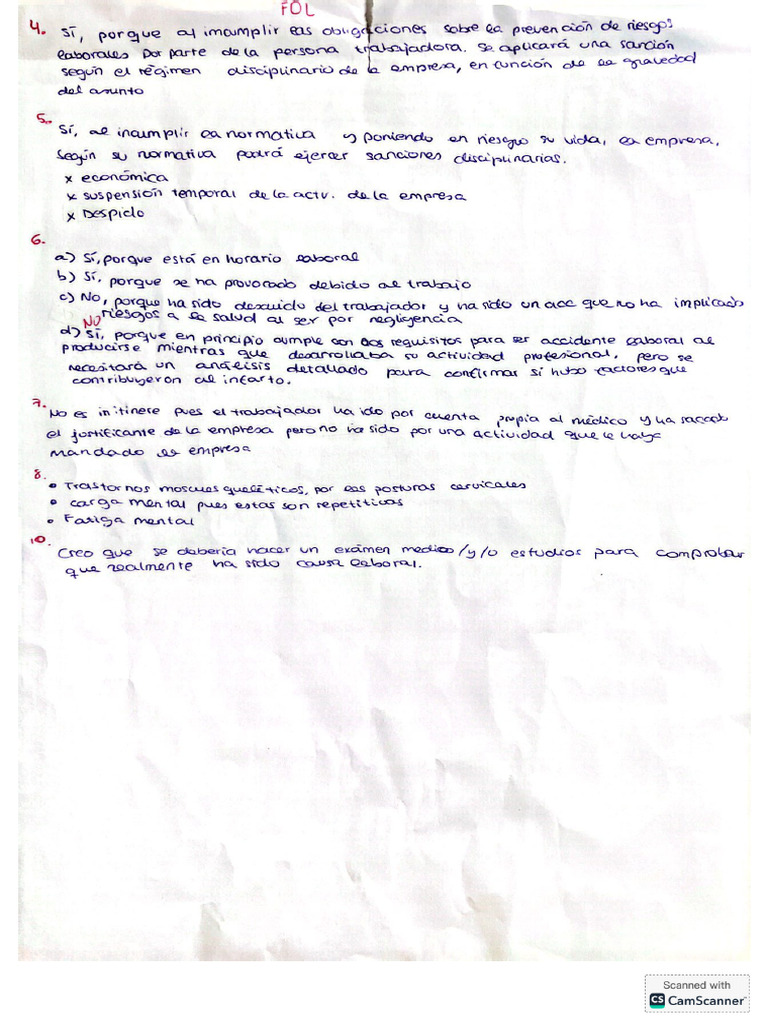 FOL
4. Sí, porque al imcumplir las obligaciones sobre la prevención de riesgos
laborales por parte de la persona trabajadora. Se aplicará una sanción
según el régimen disciplinario de la empresa, en función de la gravedad
del asunto
5.
Sí, al incumplir la normativa y poniendo en riesgo su vida, la empresa,
según su normativa podrá ejercer sanciones disciplinarias.
x económica
x suspensión temporal de la activ. de la empresa
x Despido
6.
a) Sí, porque está en horario laboral
b) Sí, porque se ha provocado debido al trabajo
c) No, porque ha sido descuido del trabajador y ha sido un acc que no ha implicado
riesgos a la salud al ser por negligencia
NO
d) Sí, porque en principio cumple con dos requisitos para ser accidente laboral al
producirse mientras que desarrollaba su actividad profesional, pero se
necesitará un análisis detallado para confirmar si hubo factores que
contribuyeron al infarto.
7.
No es initinere pues el trabajador ha ido por cuenta propia al médico y ha sacado
el justificante de la empresa pero no ha sido por una actividad que le haya
mandado la empresa
8.
• Trastornos mosculesqueléticos, por las posturas cervicales
• carga mental pues estas son repetitivas
• Fatiga mental
10.
Creo que se debería hacer un exámen medico/y/o estudios para comprobar
que realmente ha sido causa laboral.
Scanned with
CS CamScanner